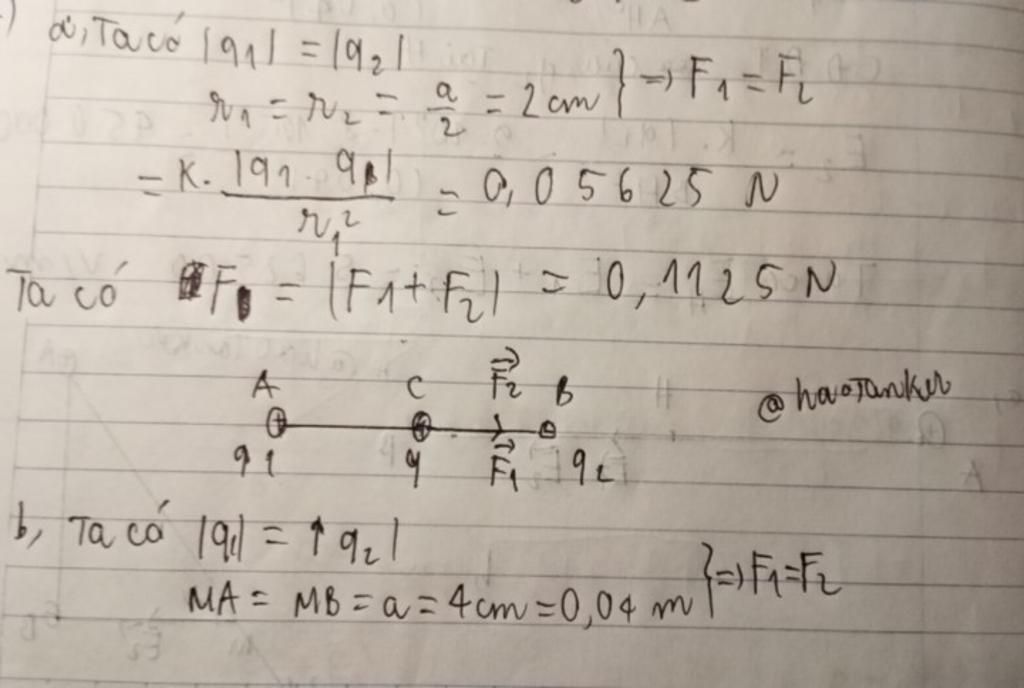 a, Ta có |q1| = |q2|
r1 = r2 = a/2 = 2cm } => F1 = F2
= K. |q1 . q| / r1² = 0,05625 N
Ta có F = |F1 + F2| = 0,1125 N
A C F2 B
@haoJanker
q1 q F1 q2
b, Ta có |q1| = |q2|
MA = MB = a = 4cm = 0,04 m } => F1 = F2